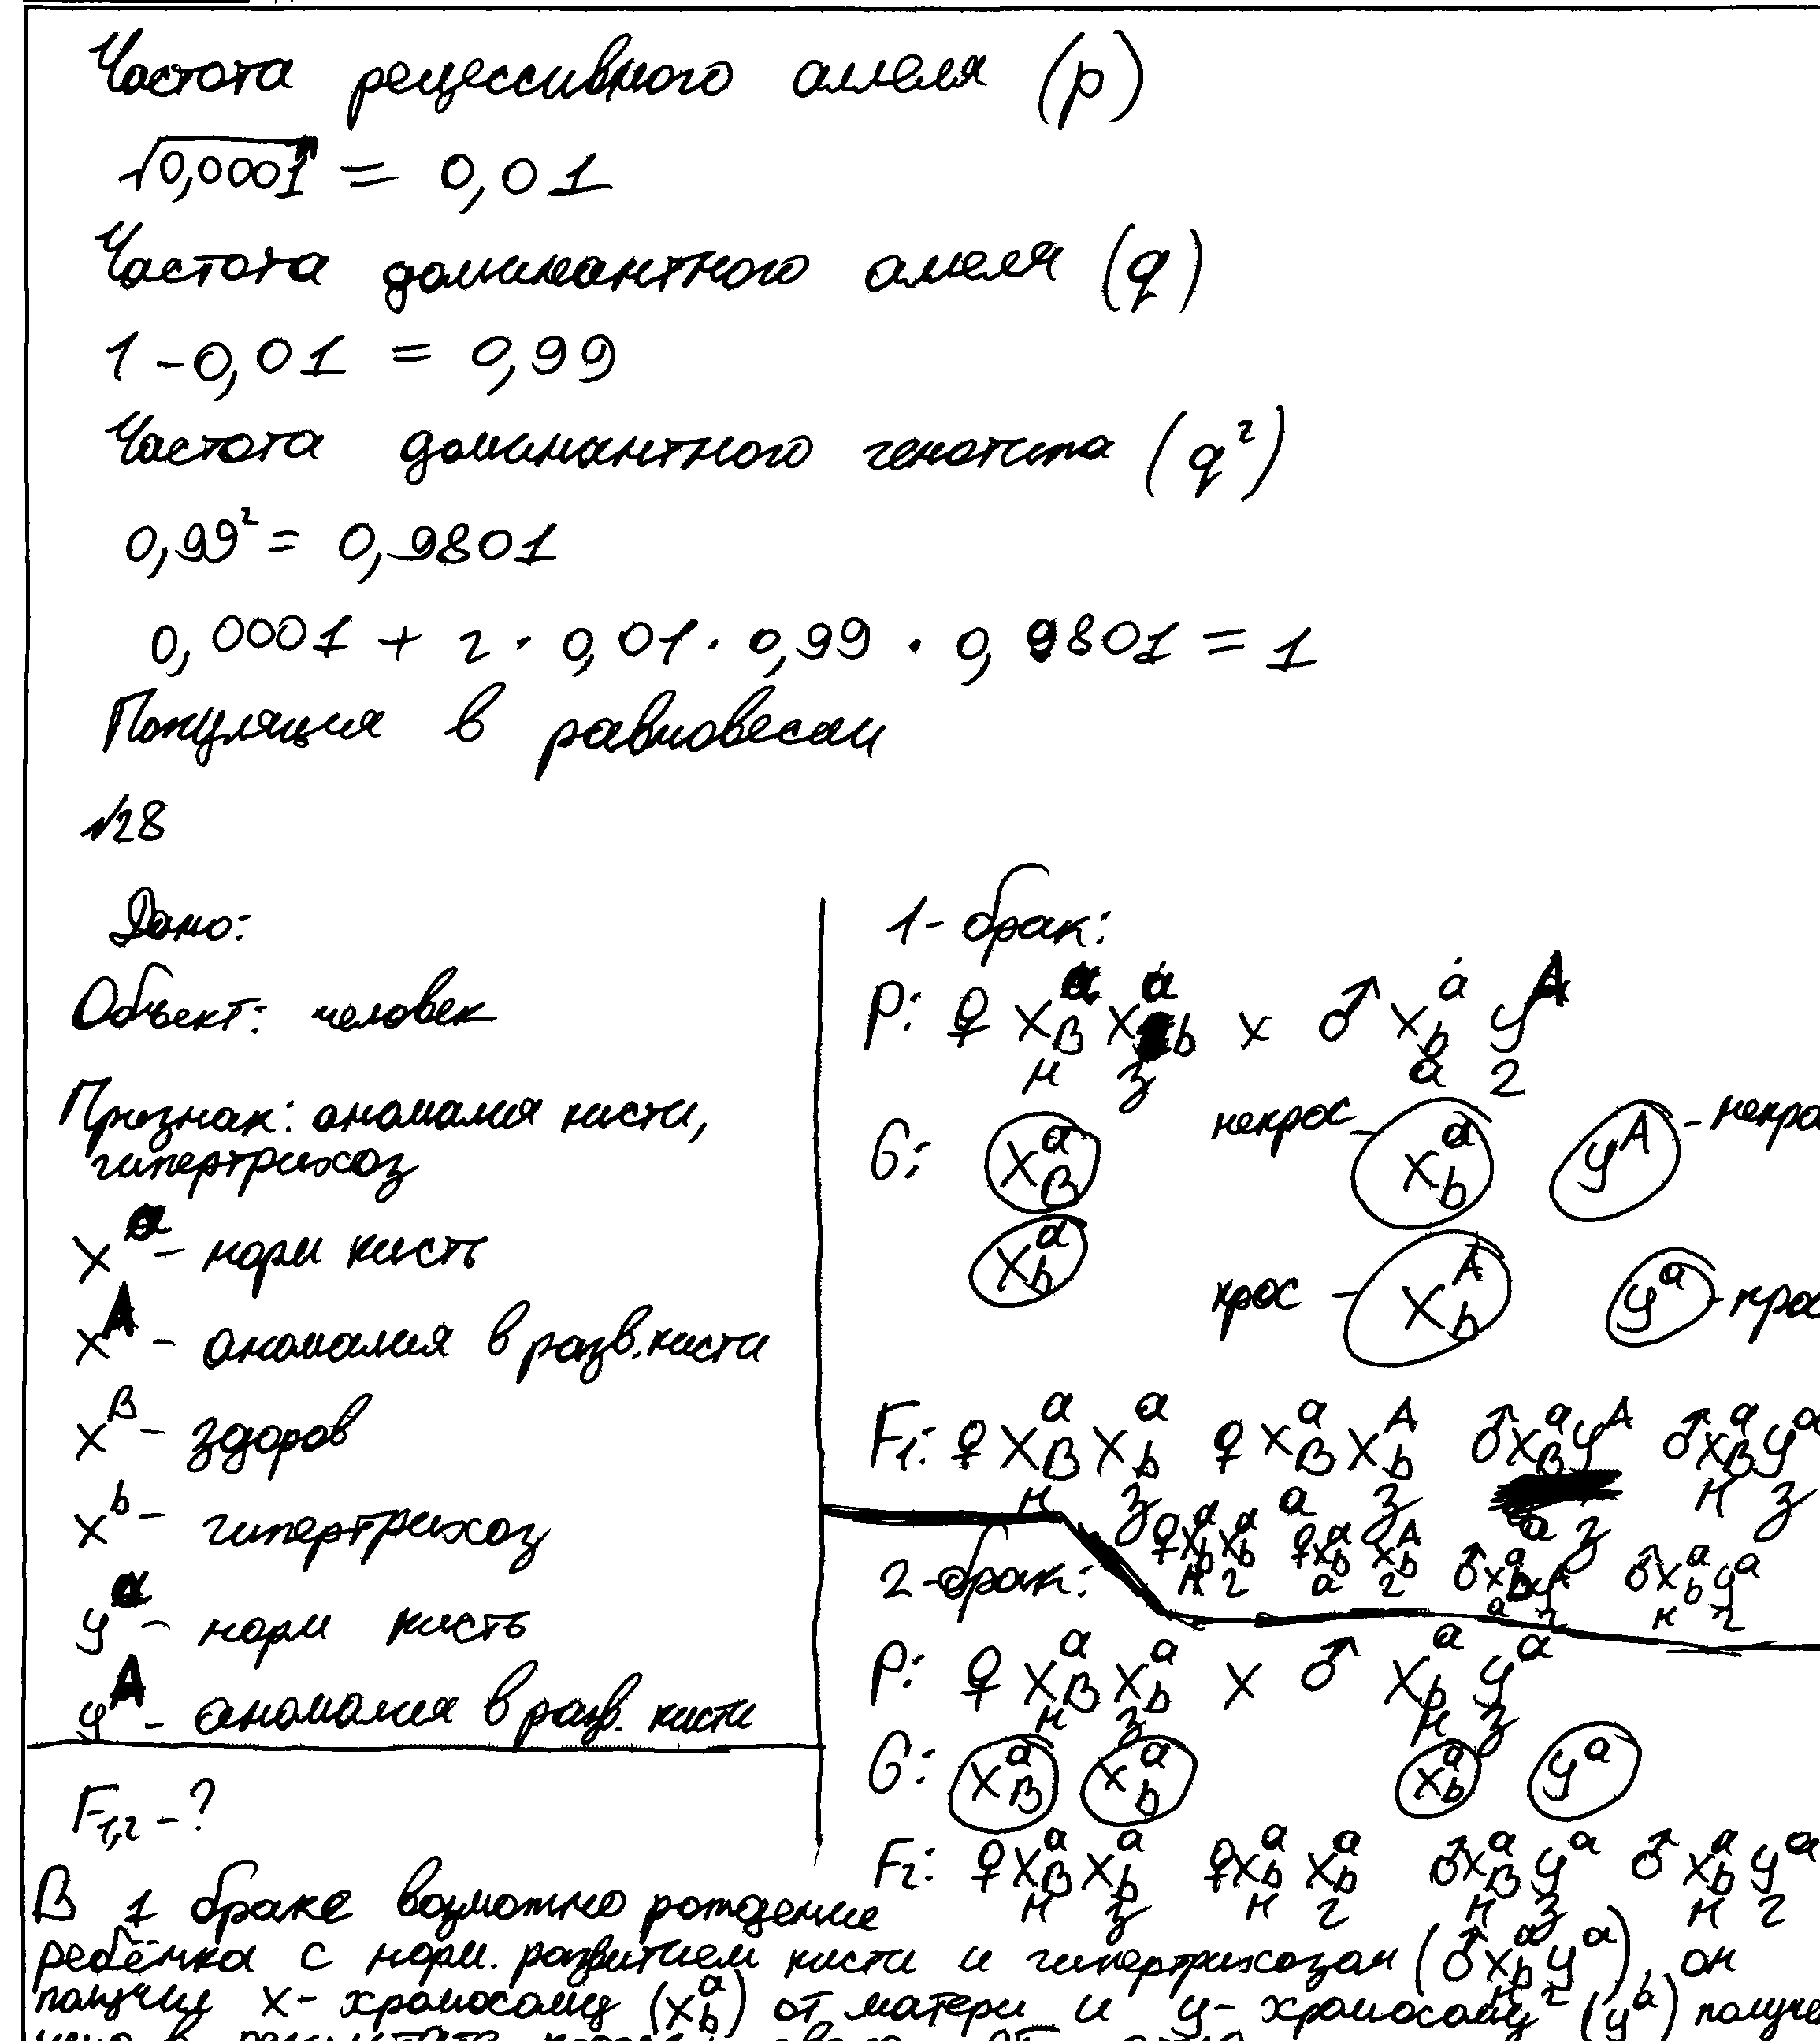 Частота рецессивного аллеля (p)
√0,0001 = 0,01
Частота доминантного аллеля (q)
1 - 0,01 = 0,99
Частота доминантного генотипа (q²)
0,99² = 0,9801
0,0001 + 2 · 0,01 · 0,99 · 0,9801 = 1
Популяция в равновесии
№28
Дано:
Объект: человек
Признак: аномалия кисти,
гипертрихоз
X^a - норм кисть
X^A - аномалия в разв. кисти
X^B - здоров
X^b - гипертрихоз
y^a - норм кисть
y^A - аномалия в разв. кисти
F1,2 - ?
1 - брак:
P: ♀ X^a_B X^a_b x ♂ X^a_b y^A
н з а г
G: X^a_B некрос - X^a_b y^A - некро
X^a_b крос - X^A_b y^a - крос
F1: ♀ X^a_B X^a_b ♀ X^a_B X^A_b ♂ X^a_B y^A ♂ X^a_B y^a
н з а з а з н з
♀ X^a_b X^a_b ♀ X^a_b X^A_b ♂ X^a_b y^A ♂ X^a_b y^a
н г а г а г н г
2 - брак:
P: ♀ X^a_B X^a_b x ♂ X^a_b y^a
н з н з
G: X^a_B X^a_b X^a_b y^a
F2: ♀ X^a_B X^a_b ♀ X^a_b X^a_b ♂ X^a_B y^a ♂ X^a_b y^a
н з н г н з н г
В 1 браке возможно рождение
ребёнка с норм. развитием кисти и гипертрихозом (♂ X^a_b y^a), он
н г
получил X - хромосому (X^a_b) от матери и y - хромосому (y^a) получе